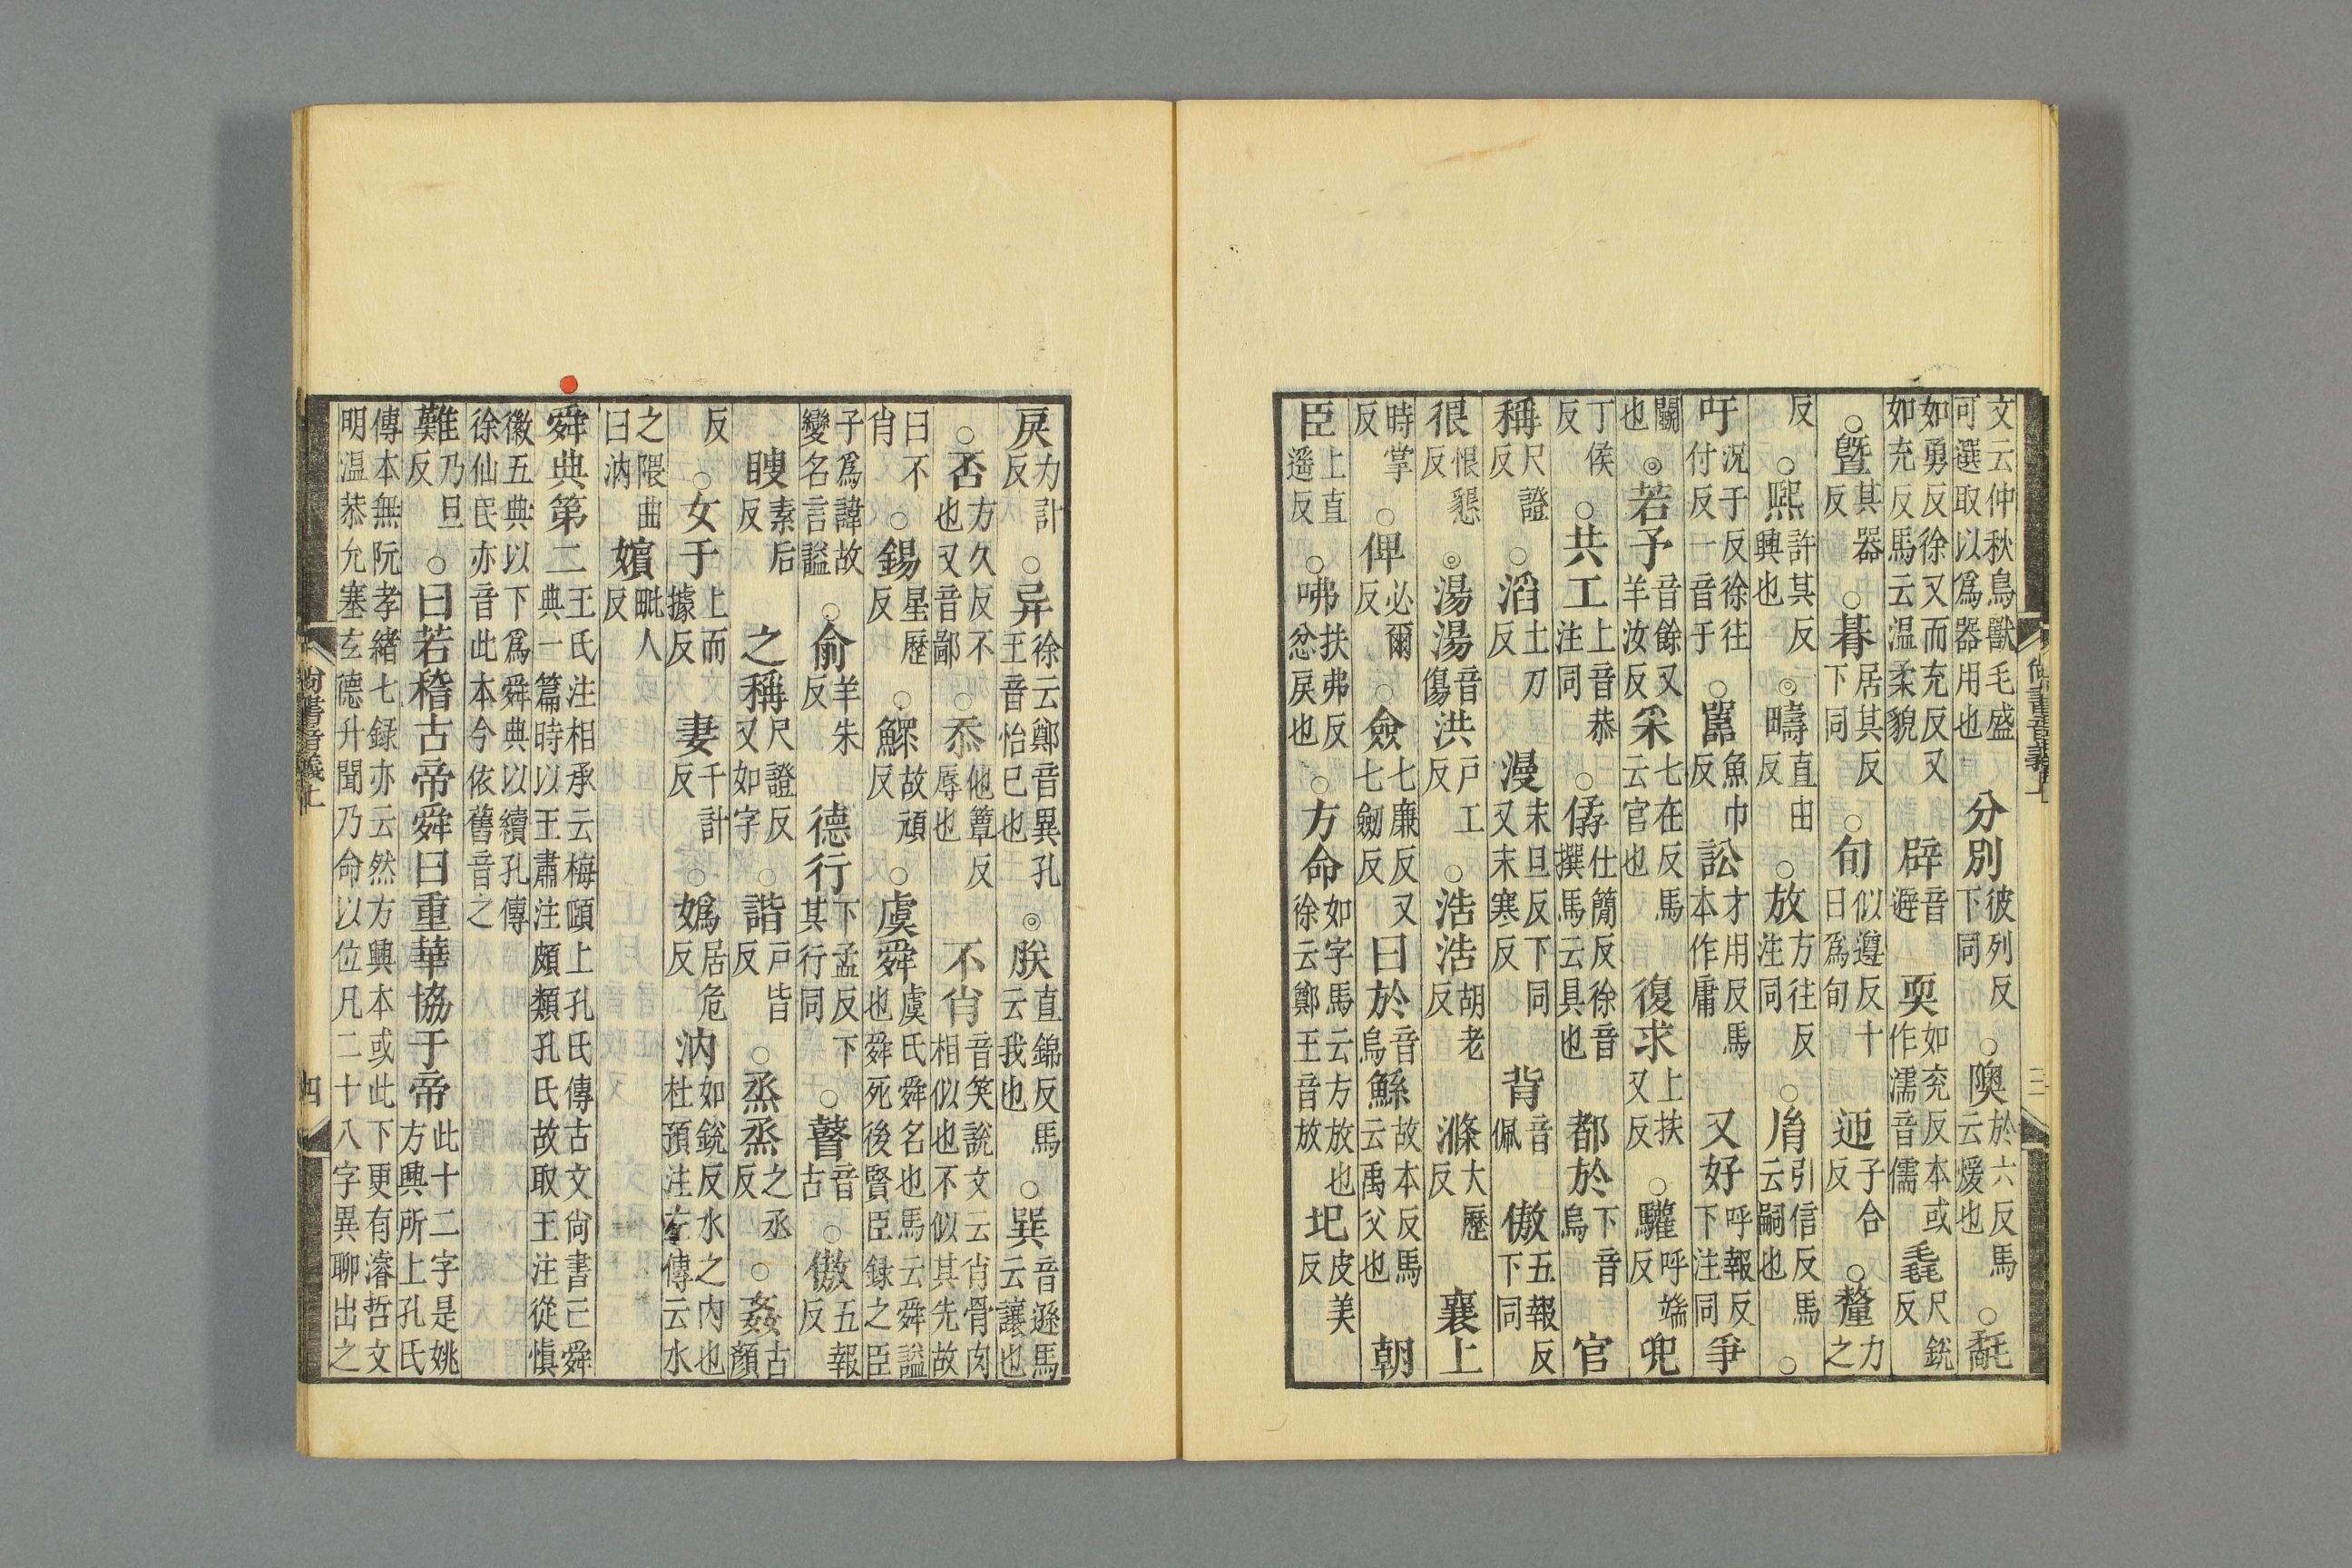 文云仲秋鳥獸毛盛可選取以爲器用也分別彼列反下同○隩於六反馬云煖也○氄
如勇反徐又而充反又如充反馬云温柔貌辟音避耎如兖反本或作濡音儒毳尺銳反
○曁其器反○朞居其反下同○旬似遵反十日爲旬迊子合反○釐力之
反○熙許其反興也◎疇直由反○放方往反注同○胤引信反馬云嗣也○
吁況于反徐往付反一音于○嚚魚巾反訟才用反馬本作庸又好呼報反下注同爭
鬭也◎若予音餘又羊汝反采七在反馬云官也復求上扶又反○驩呼端反兜
丁侯反○共工上音恭注同○僝仕簡反徐音撰馬云具也都於下音烏官
稱尺證反○滔土刀反漫末旦反下同又末寒反背音佩傲五報反下同
很恨懇反◎湯湯音傷洪戶工反○浩浩胡老反滌大歷反襄上
時掌反○俾必爾反○僉七廉反又七劒反曰於音烏鯀故本反馬云禹父也朝
臣上直遥反○咈扶弗反忿戾也○方命如字馬云方放也徐云鄭王音放圯皮美反
尚書音義上
三
戾力計反○异徐云鄭音異孔王音怡已也◎朕直錦反馬云我也○巽音遜馬云讓也
○否方久反不也又音鄙○忝他簟反辱也不肖音笑說文云肖骨肉相似也不似其先故
曰不肖○錫星歷反○鰥故頑反○虞舜虞氏舜名也馬云舜謚也舜死後賢臣録之臣
子爲諱故變名言謚○俞羊朱反德行下孟反下其行同○瞽音古○傲五報反
瞍素后反之稱尺證反又如字○諧戶皆反○烝烝之丞反○姦古顏
反○女于上而據反妻千計反○嬀居危反汭如銳反水之内也杜預注左傳云水
之隈曲曰汭嬪毗人反
舜典第二王氏注相承云梅頤上孔氏傳古文尚書亡舜典一篇時以王肅注頗類孔氏故取王注從愼
徽五典以下爲舜典以續孔傳徐仙民亦音此本今依舊音之
難乃旦反○曰若稽古帝舜曰重華協于帝此十二字是姚方興所上孔氏
傳本無阮孝緒七録亦云然方興本或此下更有濬哲文明温恭允塞玄德升聞乃命以位凡二十八字異聊出之
尚書音義上
四